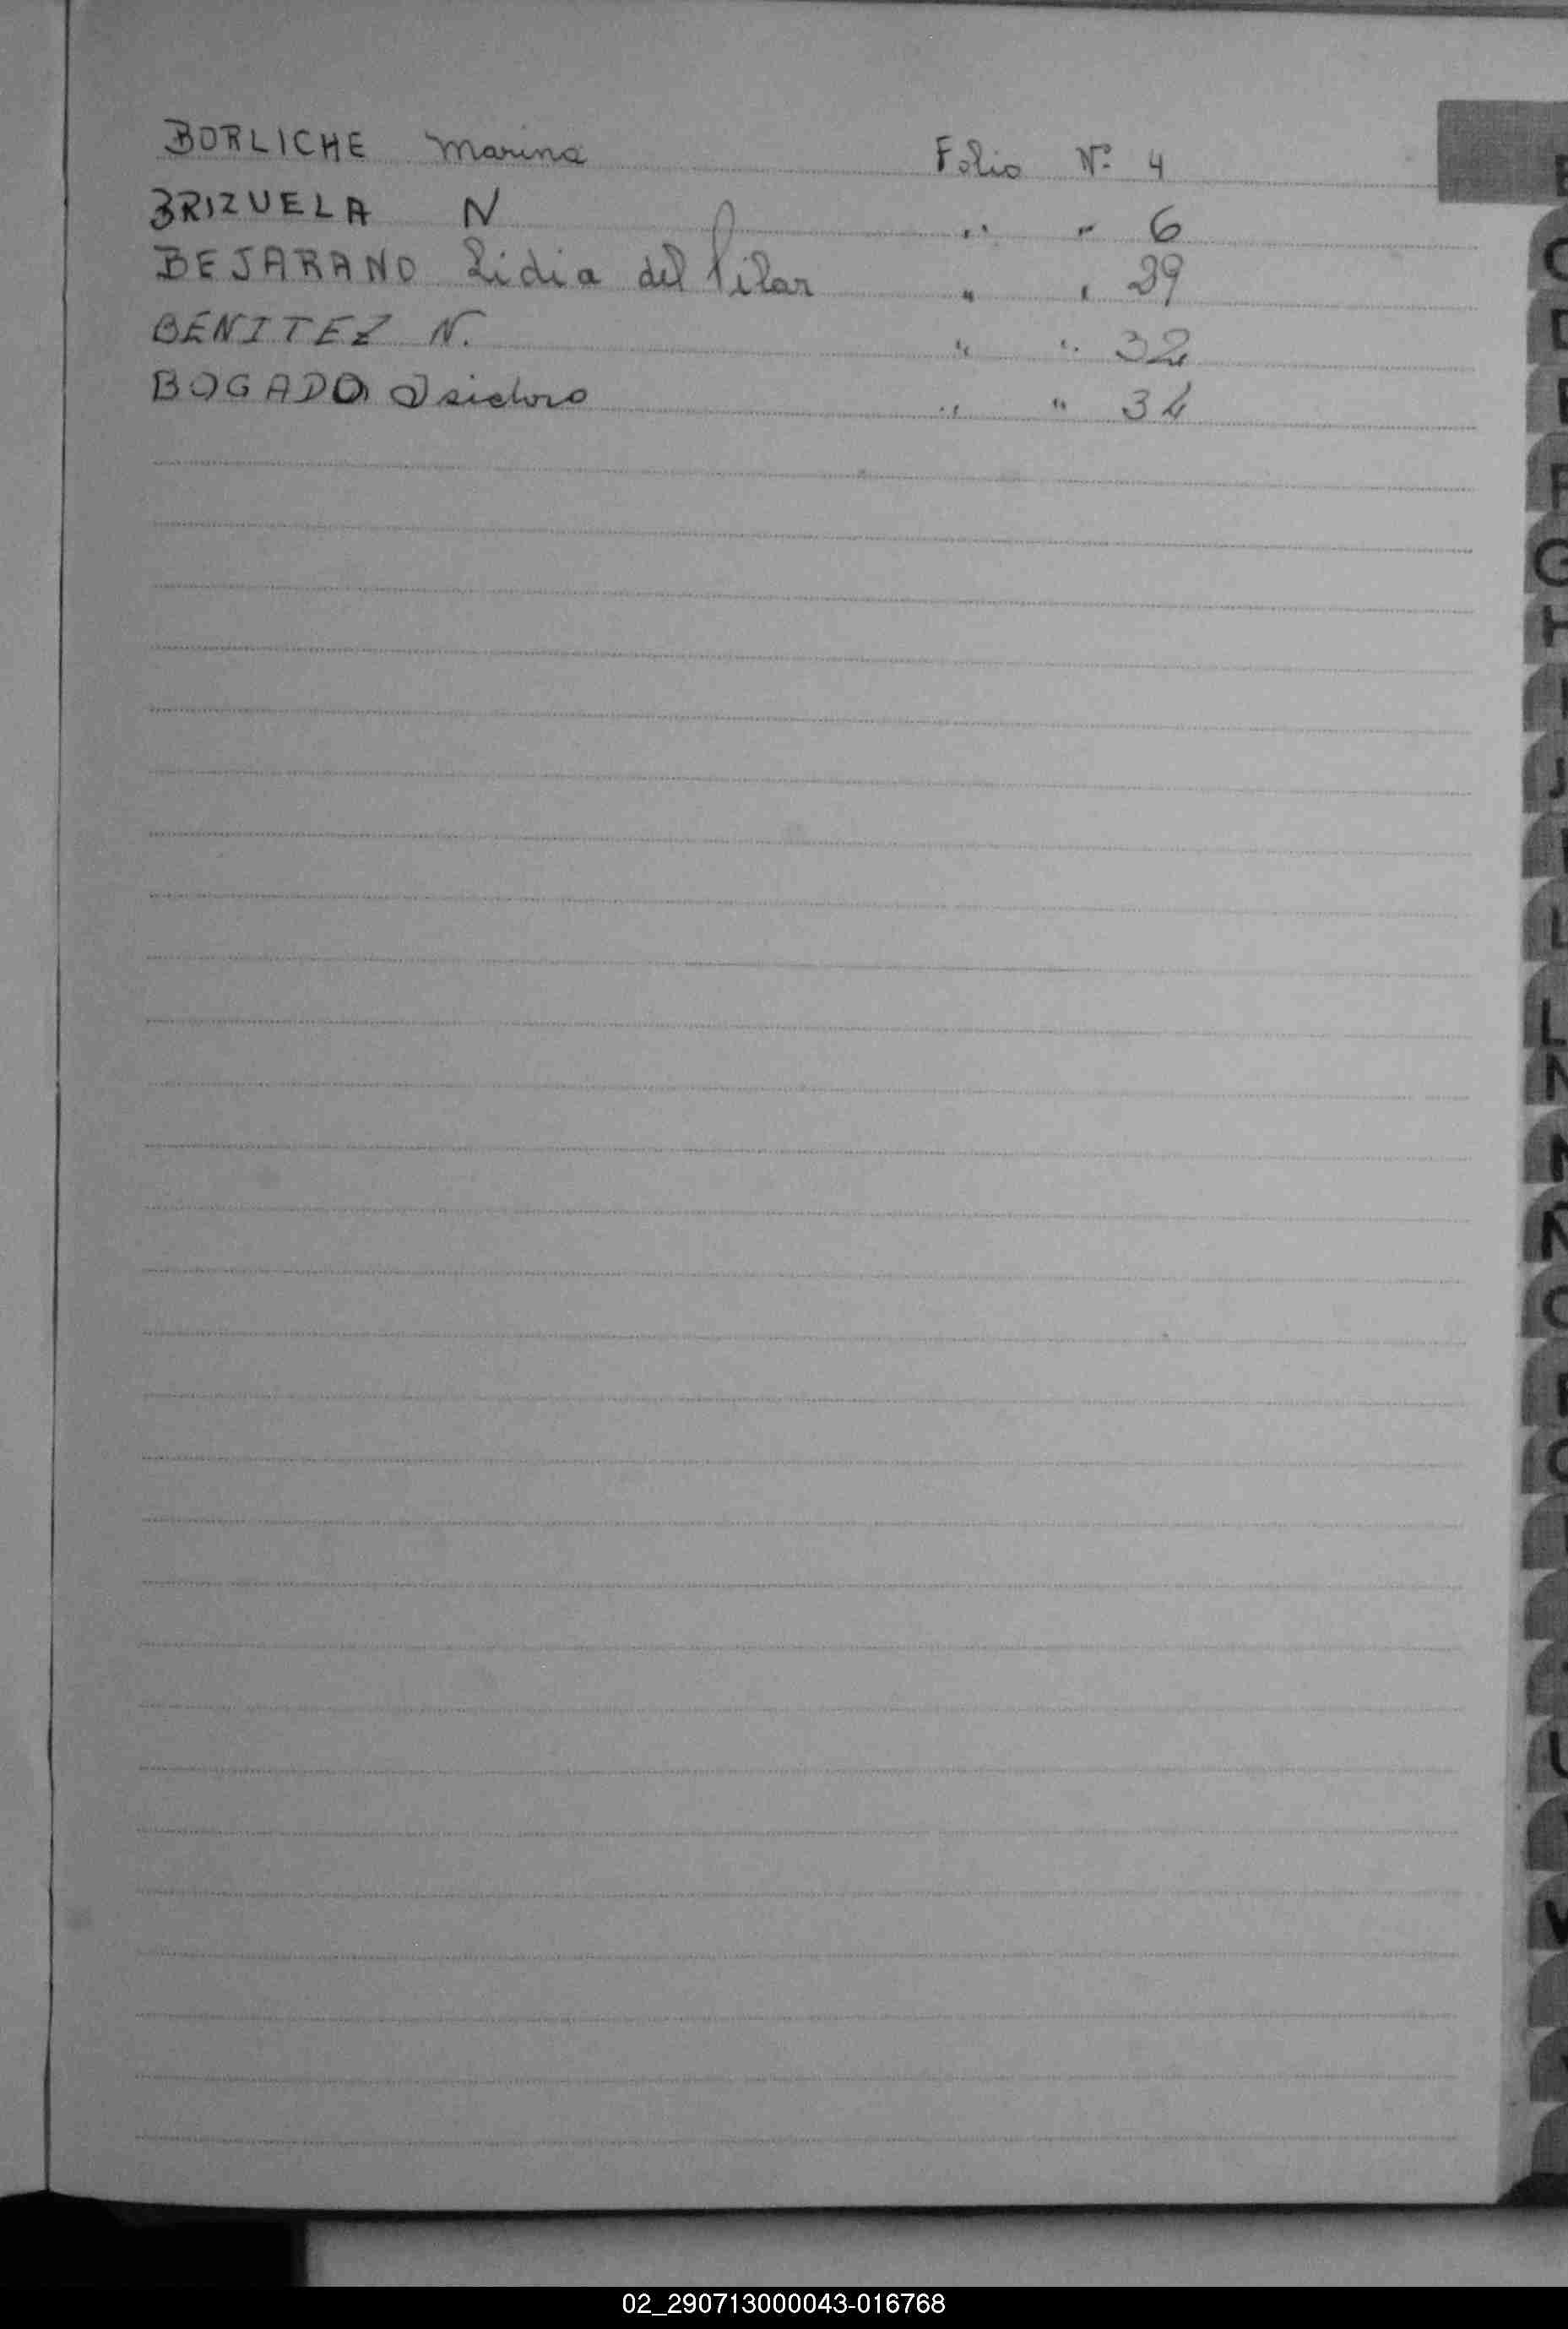 BORLICHE Marina Folio Nº 4
BRIZUELA N " " 6
BEJARANO Lidia del Pilar " " 29
BENITEZ N. " " 32
BOGADO Isidoro " " 34
02_290713000043-016768